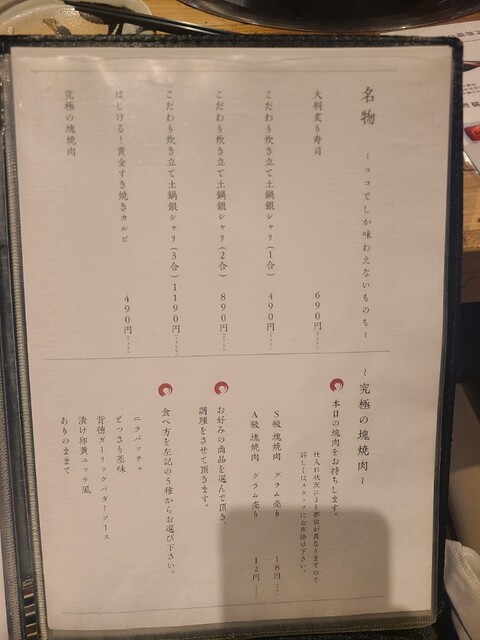 名物
～ココでしか味わえないものも～
大判炙り寿司
690円
こだわり炊き立て土鍋銀シャリ(1合)
490円
こだわり炊き立て土鍋銀シャリ(2合)
890円
こだわり炊き立て土鍋銀シャリ(3合)
1190円
はじける！黄金すき焼きカルビ
490円
究極の塊焼肉
～究極の塊焼肉～
本日の塊肉をお持ちします。
仕入れ状況により部位が異なりますので
詳しくはスタッフにお声掛け下さい。
S級 塊焼肉 グラム売り 18円
A級 塊焼肉 グラム売り 12円
お好みの商品を選んで頂き、
調理をさせて頂きます。
食べ方を左記の5種からお選び下さい。
ニラパッチョ
どっさり薬味
背徳ガーリックバターソース
漬け卵黄ユッケ風
ありのままで